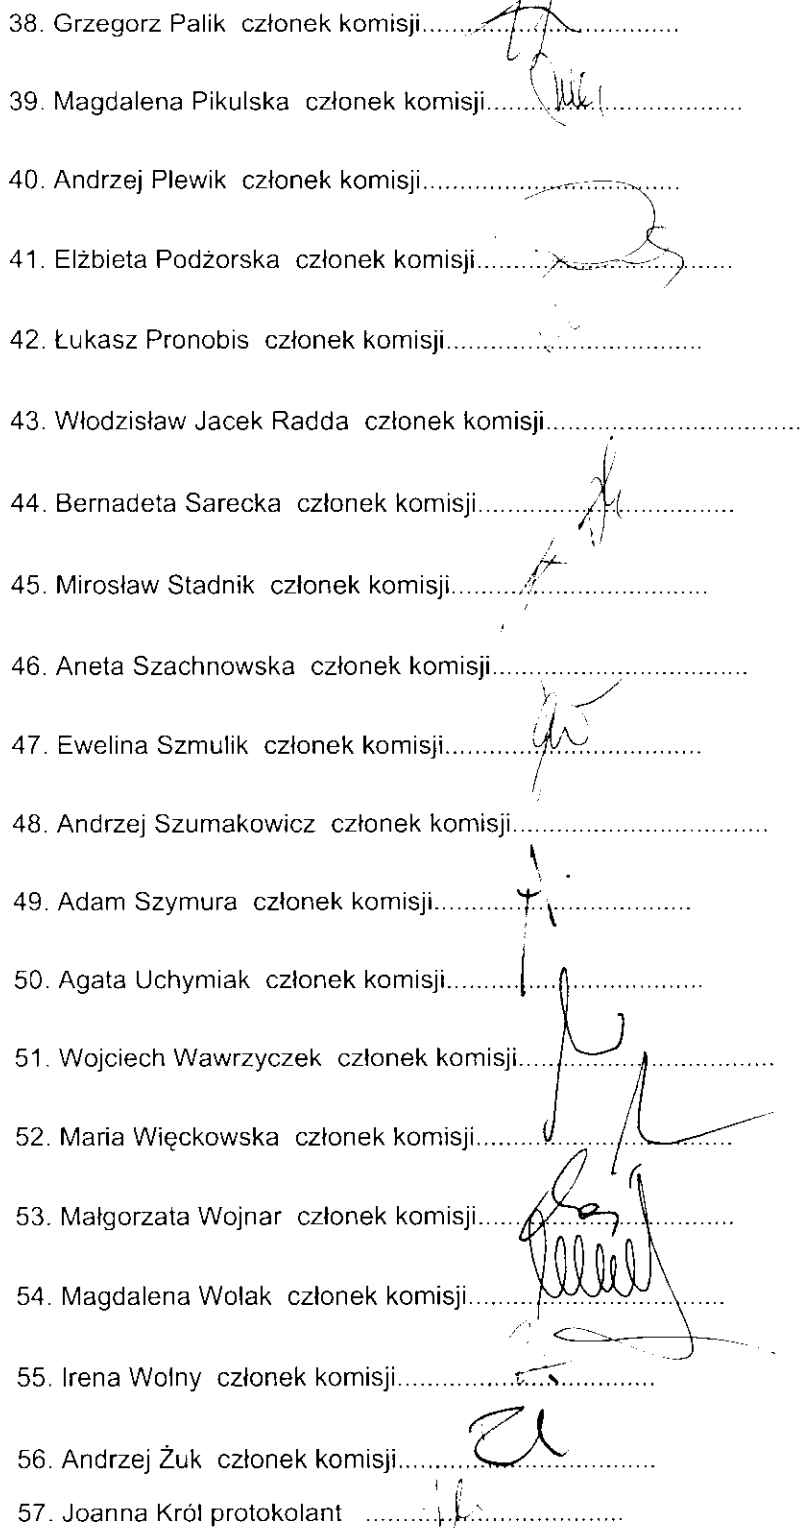 38. Grzegorz Palik członek komisji..................................
39. Magdalena Pikulska członek komisji..................................
40. Andrzej Plewik członek komisji..................................
41. Elżbieta Podżorska członek komisji..................................
42. Łukasz Pronobis członek komisji..................................
43. Włodzisław Jacek Radda członek komisji..................................
44. Bernadeta Sarecka członek komisji..................................
45. Mirosław Stadnik członek komisji..................................
46. Aneta Szachnowska członek komisji..................................
47. Ewelina Szmulik członek komisji..................................
48. Andrzej Szumakowicz członek komisji..................................
49. Adam Szymura członek komisji..................................
50. Agata Uchymiak członek komisji..................................
51. Wojciech Wawrzyczek członek komisji..................................
52. Maria Więckowska członek komisji..................................
53. Małgorzata Wojnar członek komisji..................................
54. Magdalena Wolak członek komisji..................................
55. Irena Wolny członek komisji..................................
56. Andrzej Żuk członek komisji..................................
57. Joanna Król protokolant ..................................